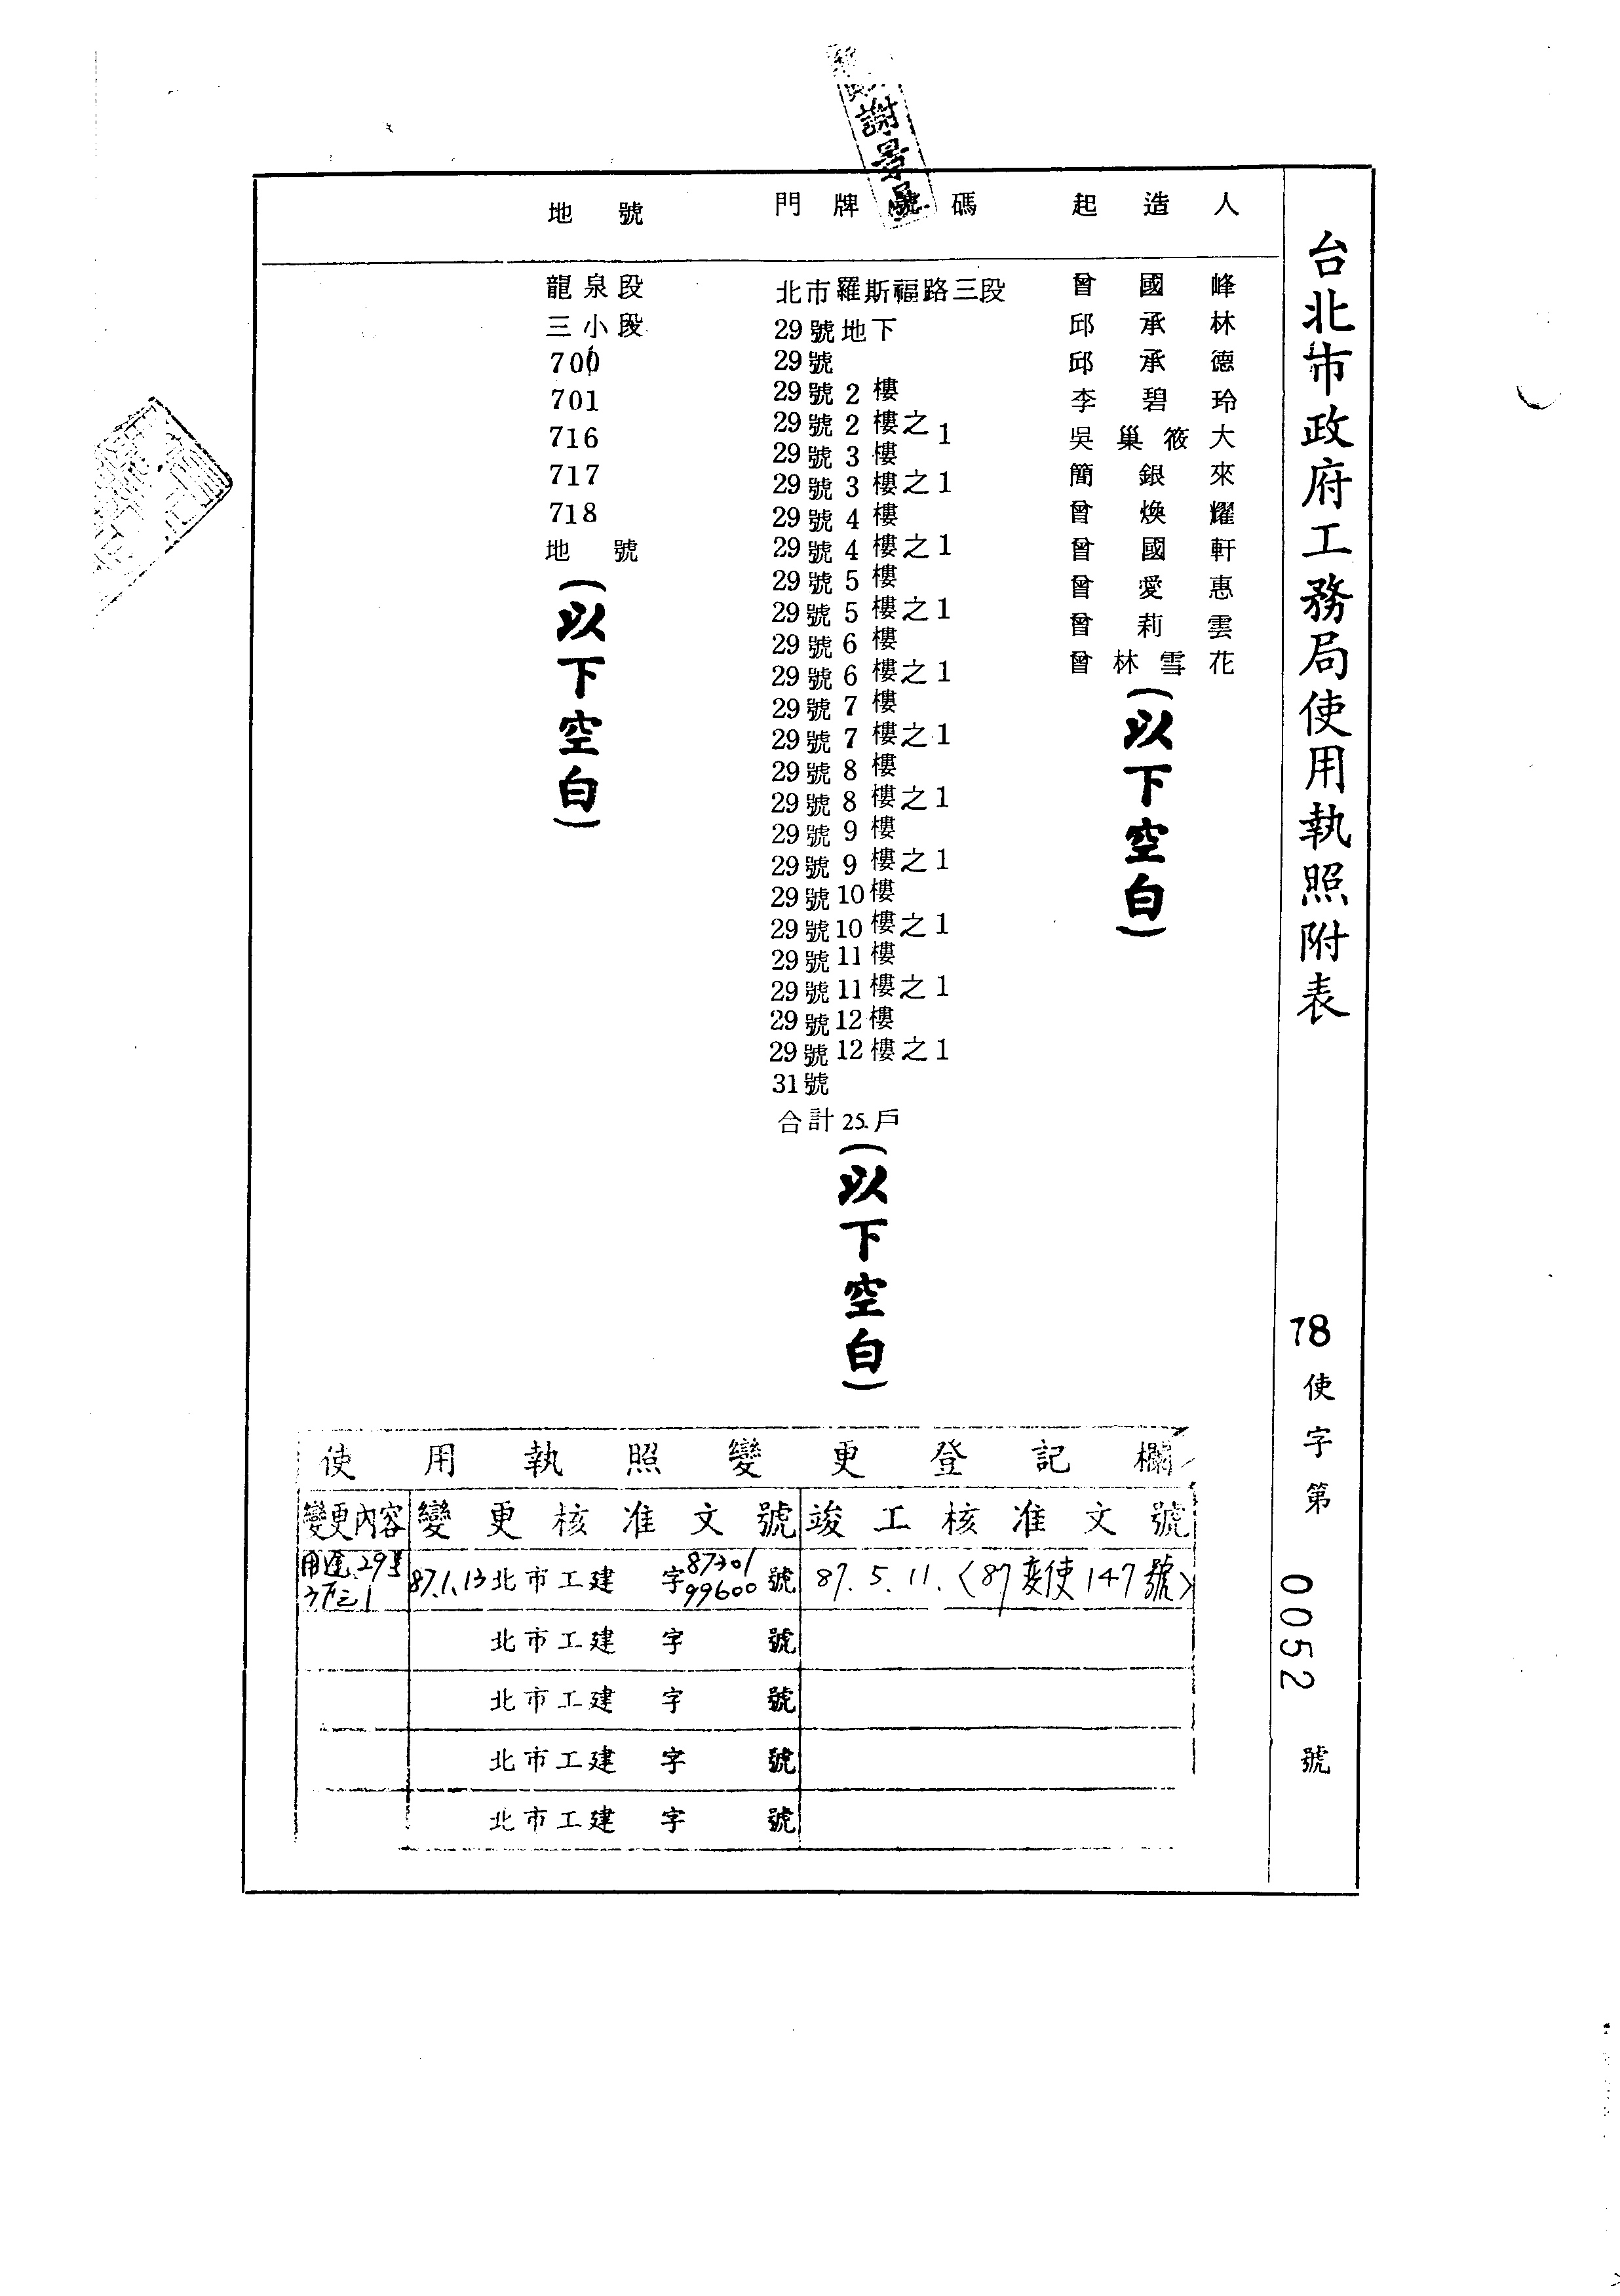 台北市政府工務局使用執照附表
78使字第0052號
謝景
起造人
曾國峰
邱承林
邱承德
李碧玲
吳巢筱大
簡銀來
曾煥耀
曾國軒
曾愛惠
曾莉雲
曾林雪花
(以下空白)
門牌號碼
北市羅斯福路三段
29號地下
29號
29號2樓
29號2樓之1
29號3樓
29號3樓之1
29號4樓
29號4樓之1
29號5樓
29號5樓之1
29號6樓
29號6樓之1
29號7樓
29號7樓之1
29號8樓
29號8樓之1
29號9樓
29號9樓之1
29號10樓
29號10樓之1
29號11樓
29號11樓之1
29號12樓
29號12樓之1
31號
合計25.戶
(以下空白)
地號
龍泉段
三小段
700
701
716
717
718
地號
(以下空白)
使用執照變更登記欄
變更內容 變更核准文號 竣工核准文號
用途29號 87.1.13北市工建字8730199600號 87.5.11.(87變使147號)
北市工建 字 號
北市工建 字 號
北市工建 字 號
北市工建 字 號